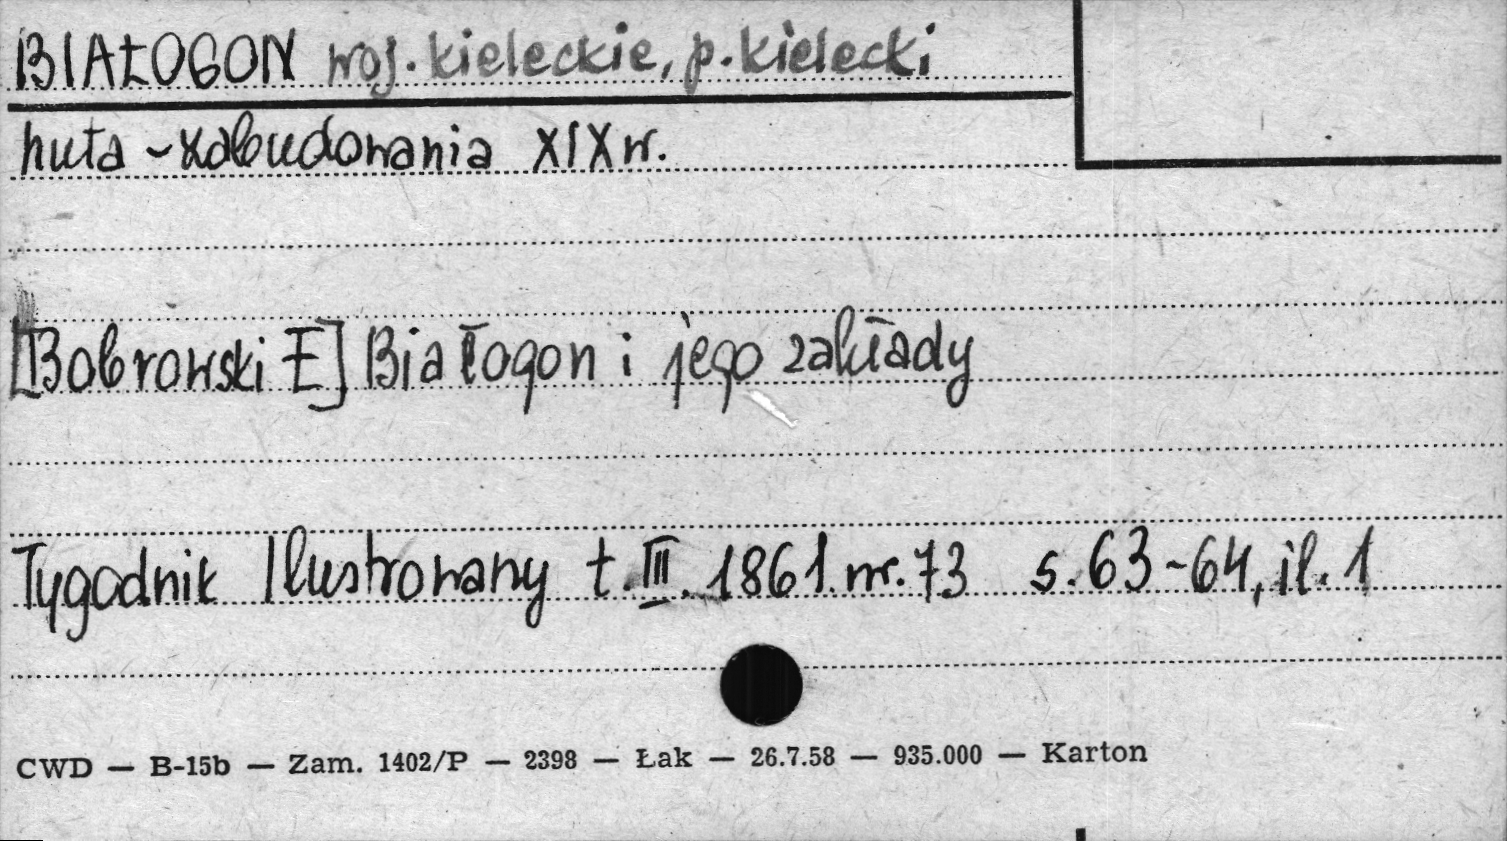 BIAŁOGON woj. kieleckie, p. kielecki
huta - zabudowania XIX w.
[Bobrowski E] Białogon i jego zakłady
Tygodnik Ilustrowany t. III. 1861. nr. 73 s. 63-64, il. 1
CWD — B-15b — Zam. 1402/P — 2398 — Łak — 26.7.58 — 935.000 — Karton